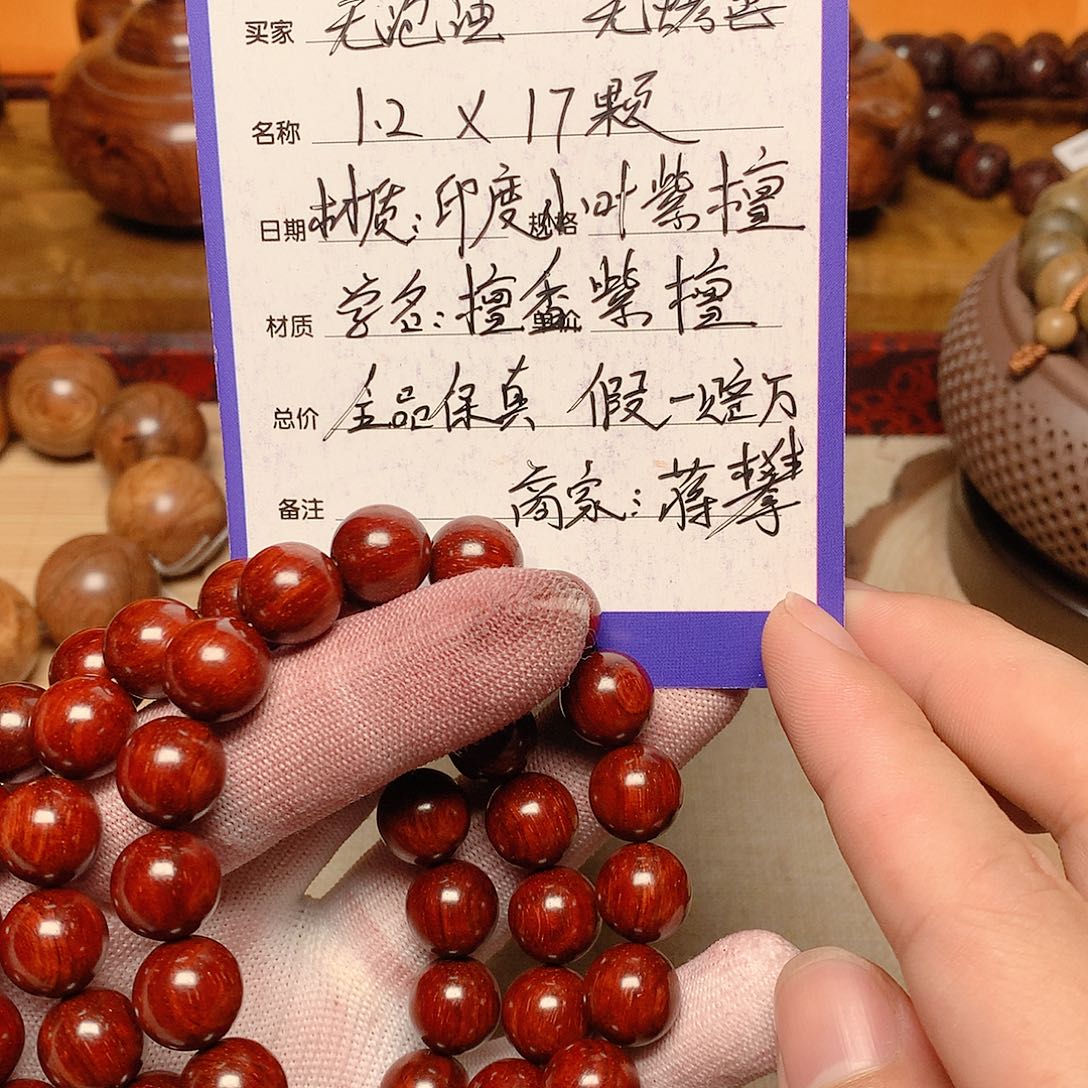 买家 无泡油 无烤色
名称 1.2 X 17颗
日期 材质：印度小叶紫檀 规格
材质 学名：檀香紫檀 单价
总价 全品保真 假一赔万
备注 商家：蒋攀